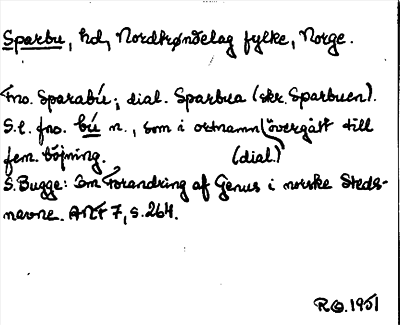 Sparbu, hd, Nordtrøndelag fylke, Norge.
fno. Sparabú; dial. Sparbua (skr. Sparbuen).
S.l. fno. bú n., som i ortnamn övergått till
fem. böjning. (dial.)
S. Bugge: Om Forandring af Genus i norske Steds-
navne. ANF 7, s. 264.
R 1951